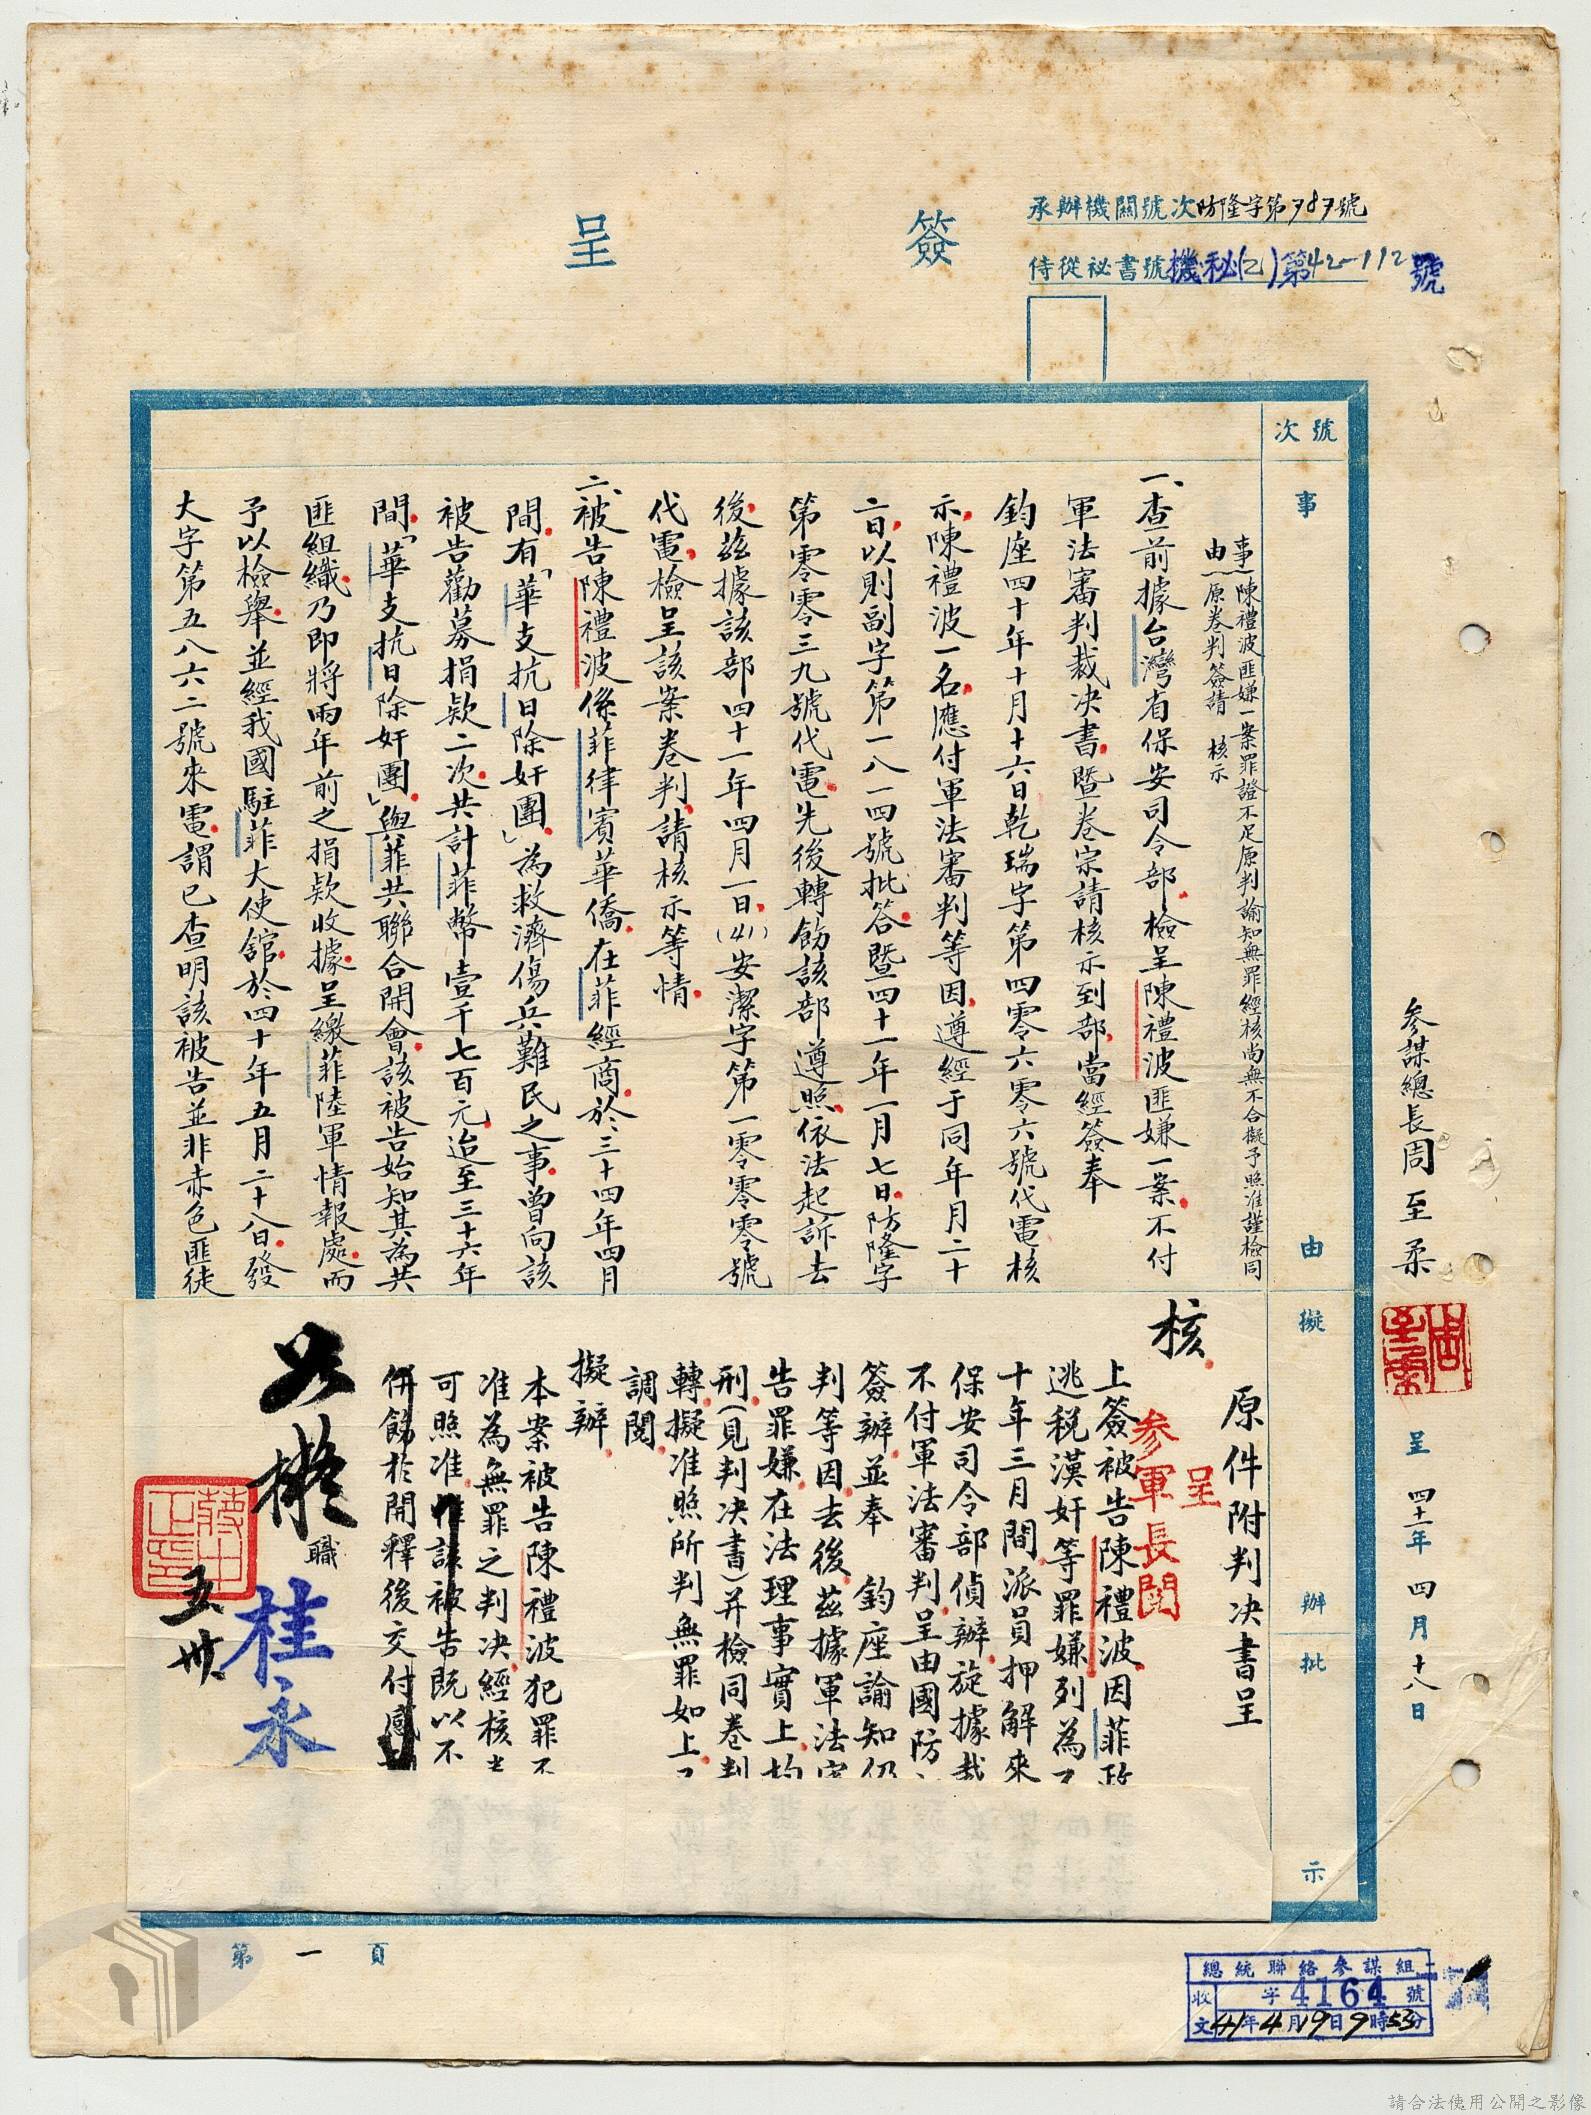 簽呈
承辦機關號次防隆字第787號
侍從祕書號機秘(乙)第42-112號
參謀總長周至柔
呈 四十一年四月十八日
號次
事由
擬辦
批示
事由
陳禮波匪嫌一案罪證不足原判諭知無罪經核尚無不合擬予照准謹檢同
原卷判簽請 核示
一、查前據台灣省保安司令部檢呈陳禮波匪嫌一案不付
軍法審判裁決書暨卷宗請核示到部當經簽奉
鈞座四十年十月十六日乾瑞字第四零六零六號代電核
示陳禮波一名應付軍法審判等因遵經于同年月二十
二日以則副字第一八一四號批答暨四十一年一月七日防隆字
第零零三九號代電先後轉飭該部遵照依法起訴去
後茲據該部四十一年四月一日(41)安潔字第一零零零號
代電檢呈該案卷判請核示等情
二、被告陳禮波係菲律賓華僑在菲經商於三十四年四月
間有「華支抗日除奸團」為救濟傷兵難民之事曾向該
被告勸募捐款二次共計菲幣壹千七百元迨至三十六年
間「華支抗日除奸團」與菲共聯合開會該被告始知其為共
匪組織乃即將兩年前之捐款收據呈繳菲陸軍情報處而
予以檢舉並經我國駐菲大使館於四十年五月二十八日發
大字第五八六二號來電謂已查明該被告並非赤色匪徒
原件附判決書呈
核
呈
參軍長閱
上簽被告陳禮波因菲政
逃稅漢奸等罪嫌列為
十年三月間派員押解來
保安司令部偵辦旋據裁
不付軍法審判呈由國防
簽辦並奉 鈞座諭知仍
判等因去後茲據軍法
告罪嫌在法理事實上均
刑(見判決書)并檢同卷判
轉擬准照所判無罪如上
調閱
擬辦
本案被告陳禮波犯罪不
准為無罪之判決經核尚
可照准 該被告既以不
併飭於開釋後交付感
如擬
職
桂永
五 卅
第一頁
總統聯絡參謀組
收文 字4164號
41年4月19日9時53分
請合法使用公開之影像